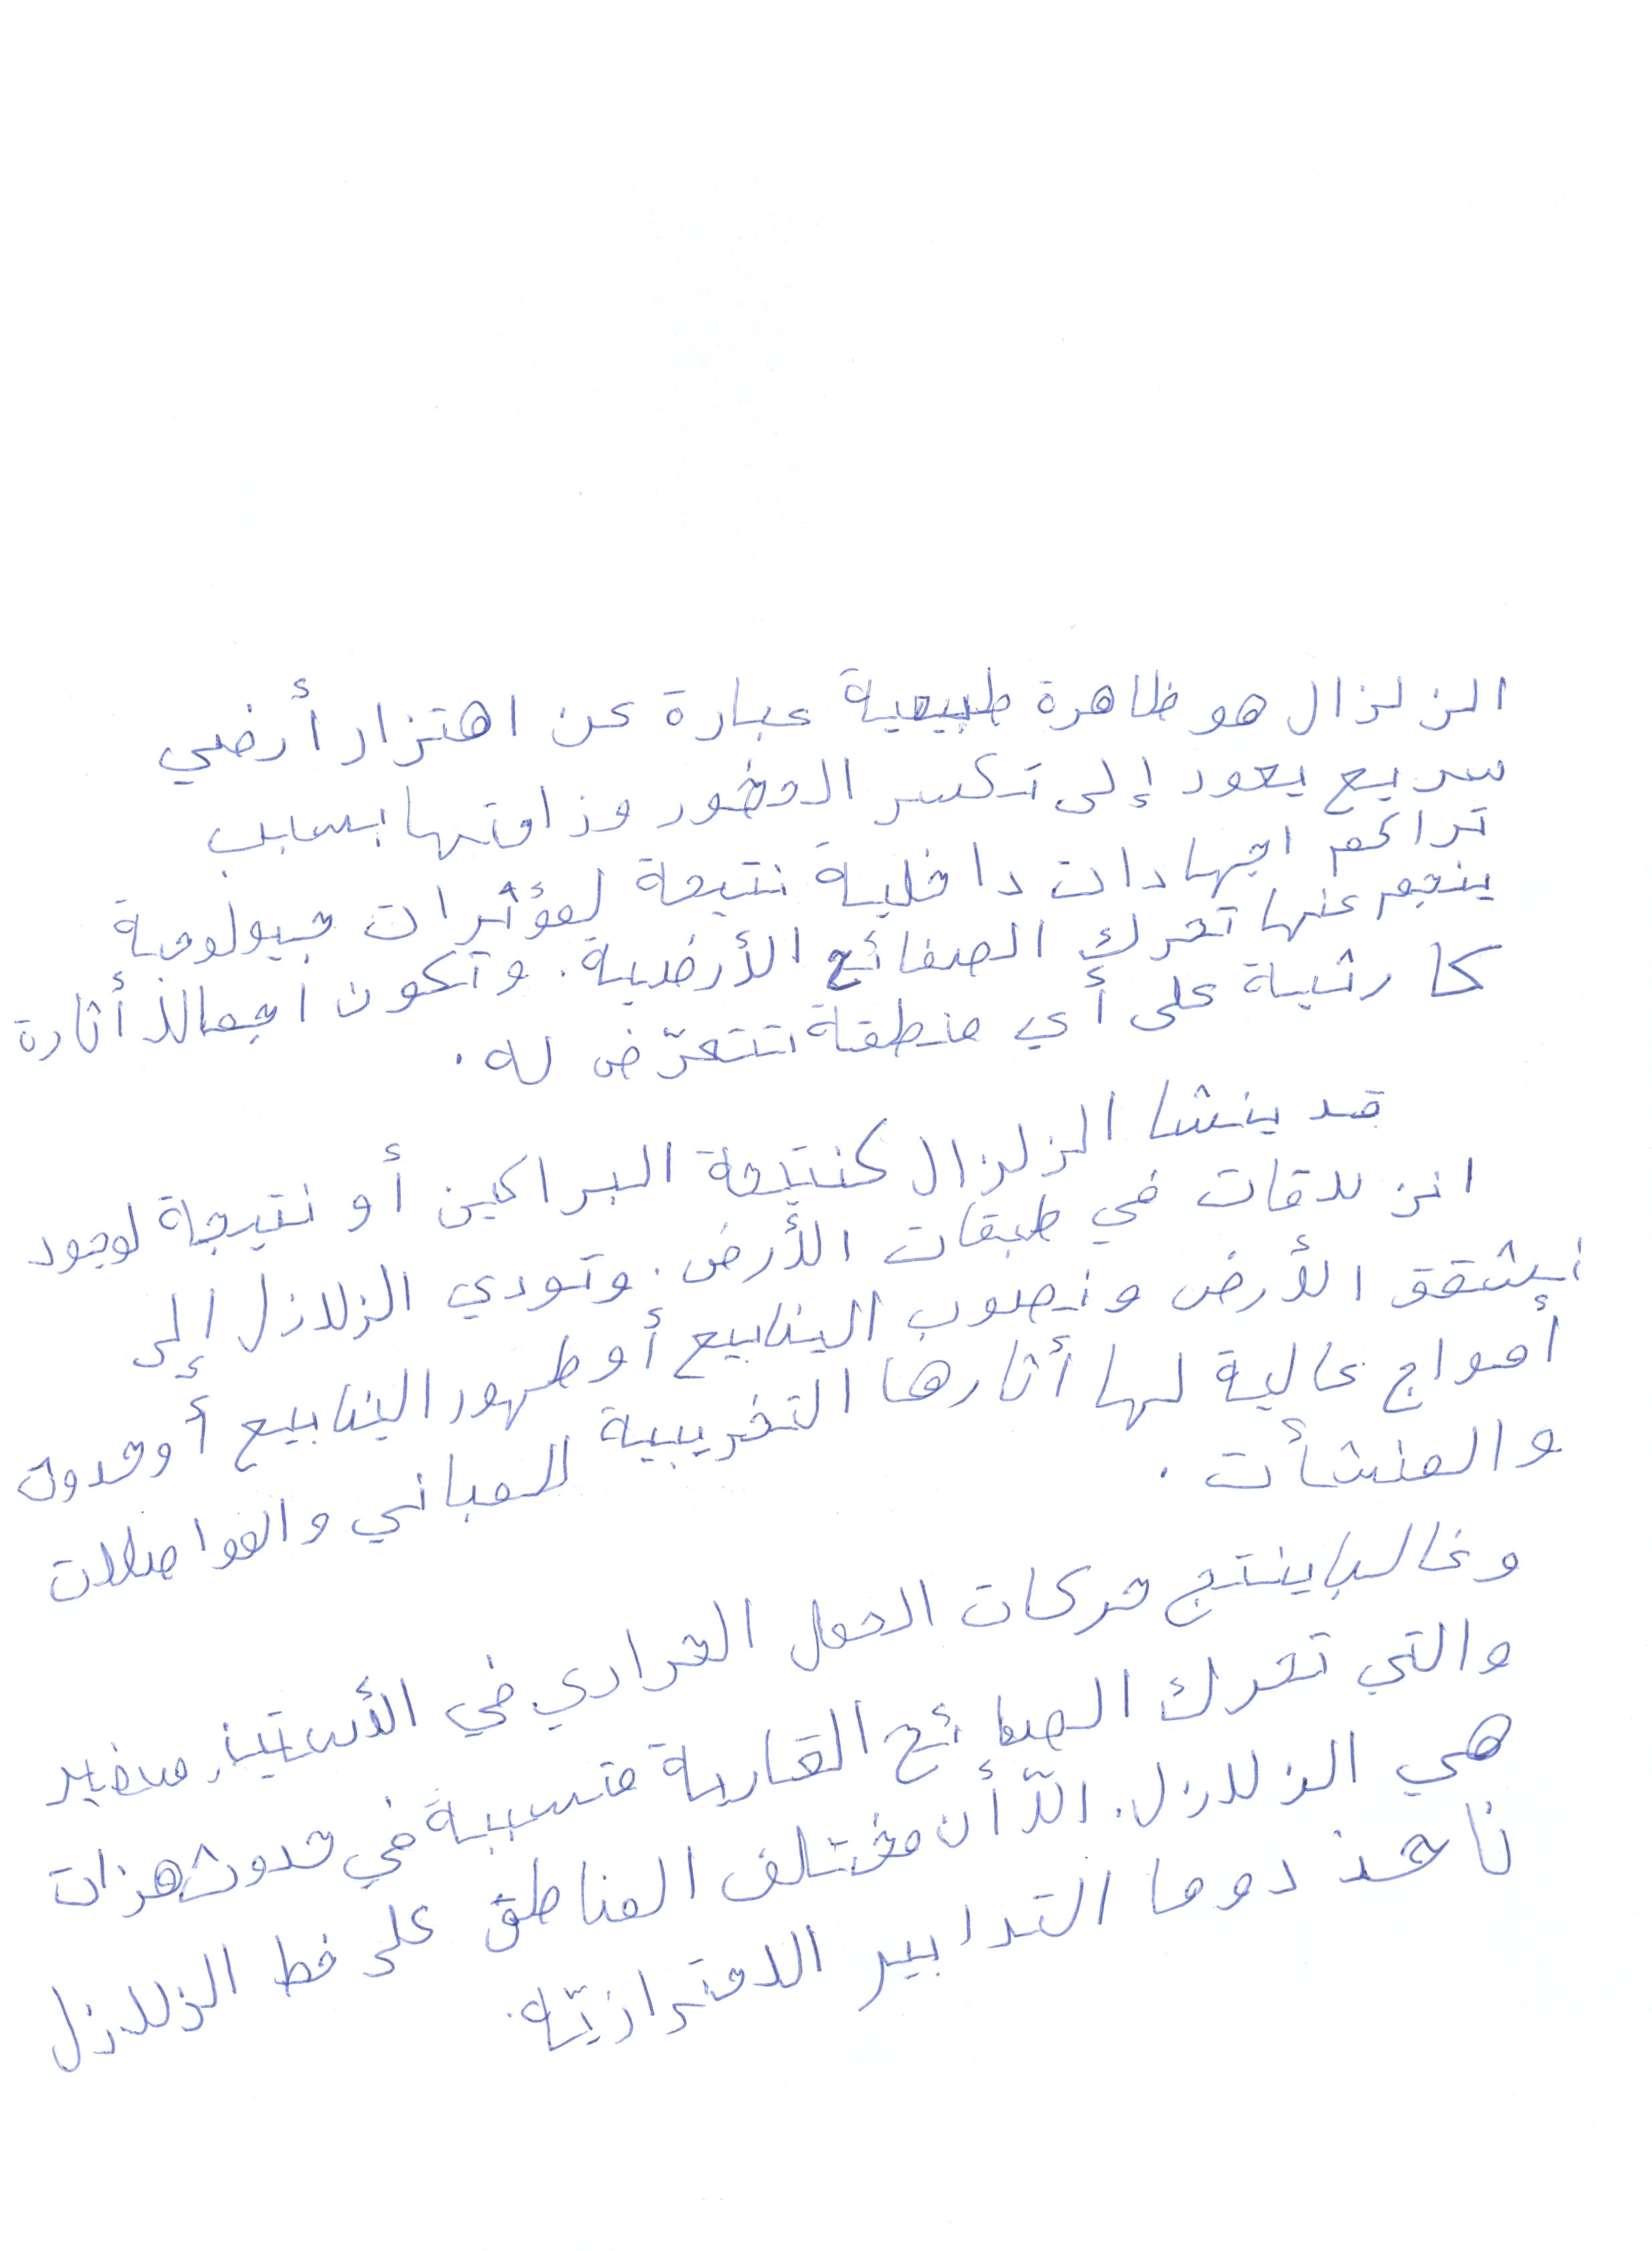 الزلزال هو ظاهرة طبيعية عبارة عن اهتزاز أرضي
سريع يعود إلى تكسر الصخور وزاحتها بسبب
تراكم اجهادات داخلية نتيجة لمؤثرات جيولوجية
ينجم عنها تحرك الصفائح الأرضية. وتكون اجمالا أثارة
كارثية على أي منطقة تتعرّض له.
قد ينشا الزلزال كنتيجة البراكين أو نتيجة لوجود
انزلاقات في طبقات الأرض. وتودي الزلازل إلى
تشقق الأرض ونصوب الينابيع أو ظهور الينابيع أوحدوث
أمواج عالية لها أثارها التخريبية للمباني والمواصلات
والمنشأت.
وغالبا ينتج حركات الحمل الحراري في
والتي تحرك الصفائح القارية متسببة في حدوث هزات
هي الزلازل. الاّ أن مختلف المناطق على خط الزلازل
تأخذ دوما التدابير الاحترازيّة.